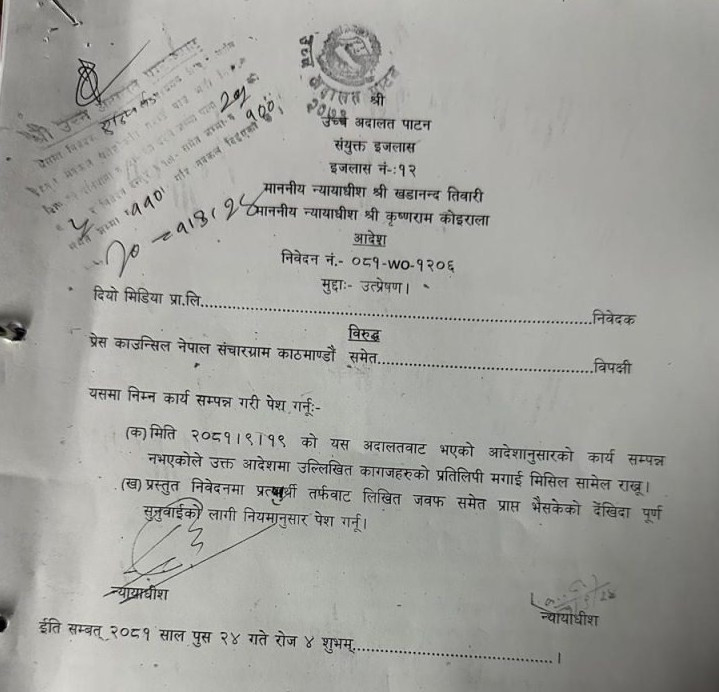 श्री
उच्च अदालत पाटन
संयुक्त इजलास
इजलास नं-:१२
माननीय न्यायाधीश श्री खडानन्द तिवारी
माननीय न्यायाधीश श्री कृष्णराम कोइराला
आदेश
निवेदन नं.- ०८१-WO-१२०६
मुद्दाः- उत्प्रेषण।
दियो मिडिया प्रा.लि.......................................................................निवेदक
विरुद्ध
प्रेस काउन्सिल नेपाल संचारग्राम काठमाण्डौं समेत.......................................विपक्षी
यसमा निम्न कार्य सम्पन्न गरी पेश गर्नूः-
(क) मिति २०८१।९।१९ को यस अदालतवाट भएको आदेशानुसारको कार्य सम्पन्न
नभएकोले उक्त आदेशमा उल्लिखित कागजहरुको प्रतिलिपी मगाई मिसिल सामेल राखू।
(ख) प्रस्तुत निवेदनमा प्रत्यर्थी तर्फवाट लिखित जवफ समेत प्राप्त भैसकेको देंखिदा पूर्ण
सुनुवाईको लागी नियमानुसार पेश गर्नू।
न्यायाधीश
न्यायाधीश
ईति सम्वत् २०८१ साल पुस २४ गते रोज ४ शुभम्........................................।